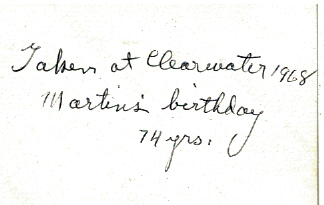 Taken at Clearwater 1968
Martin's birthday
74 yrs.